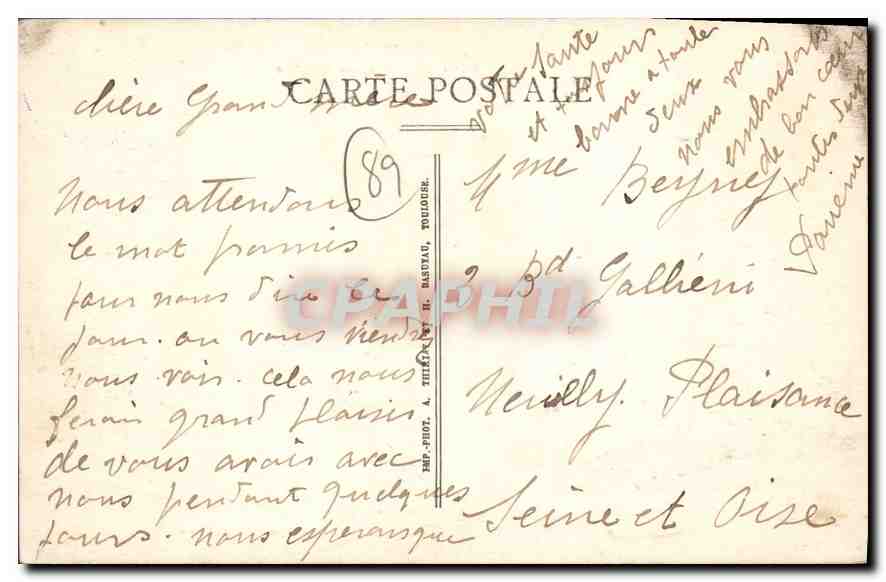 CARTE POSTALE
chère Grand mère
89
Nous attendons
le mot promis
pour nous dire le
jour ou vous viendrez
nous voir. cela nous
ferais grand plaisir
de vous avoir avec
nous pendant quelques
jours. nous esperons que
votre santé
et toujours
bonne a toute
deux
nous vous
embrassons
de bon cœur
toutes deux
Mme Beyney
3 Bd Galliéni
Neuilly Plaisance
Seine et Oise
IMP.-PHOT. A. THIRIAT ET H. BASUYAU, TOULOUSE.
CPAPHIL